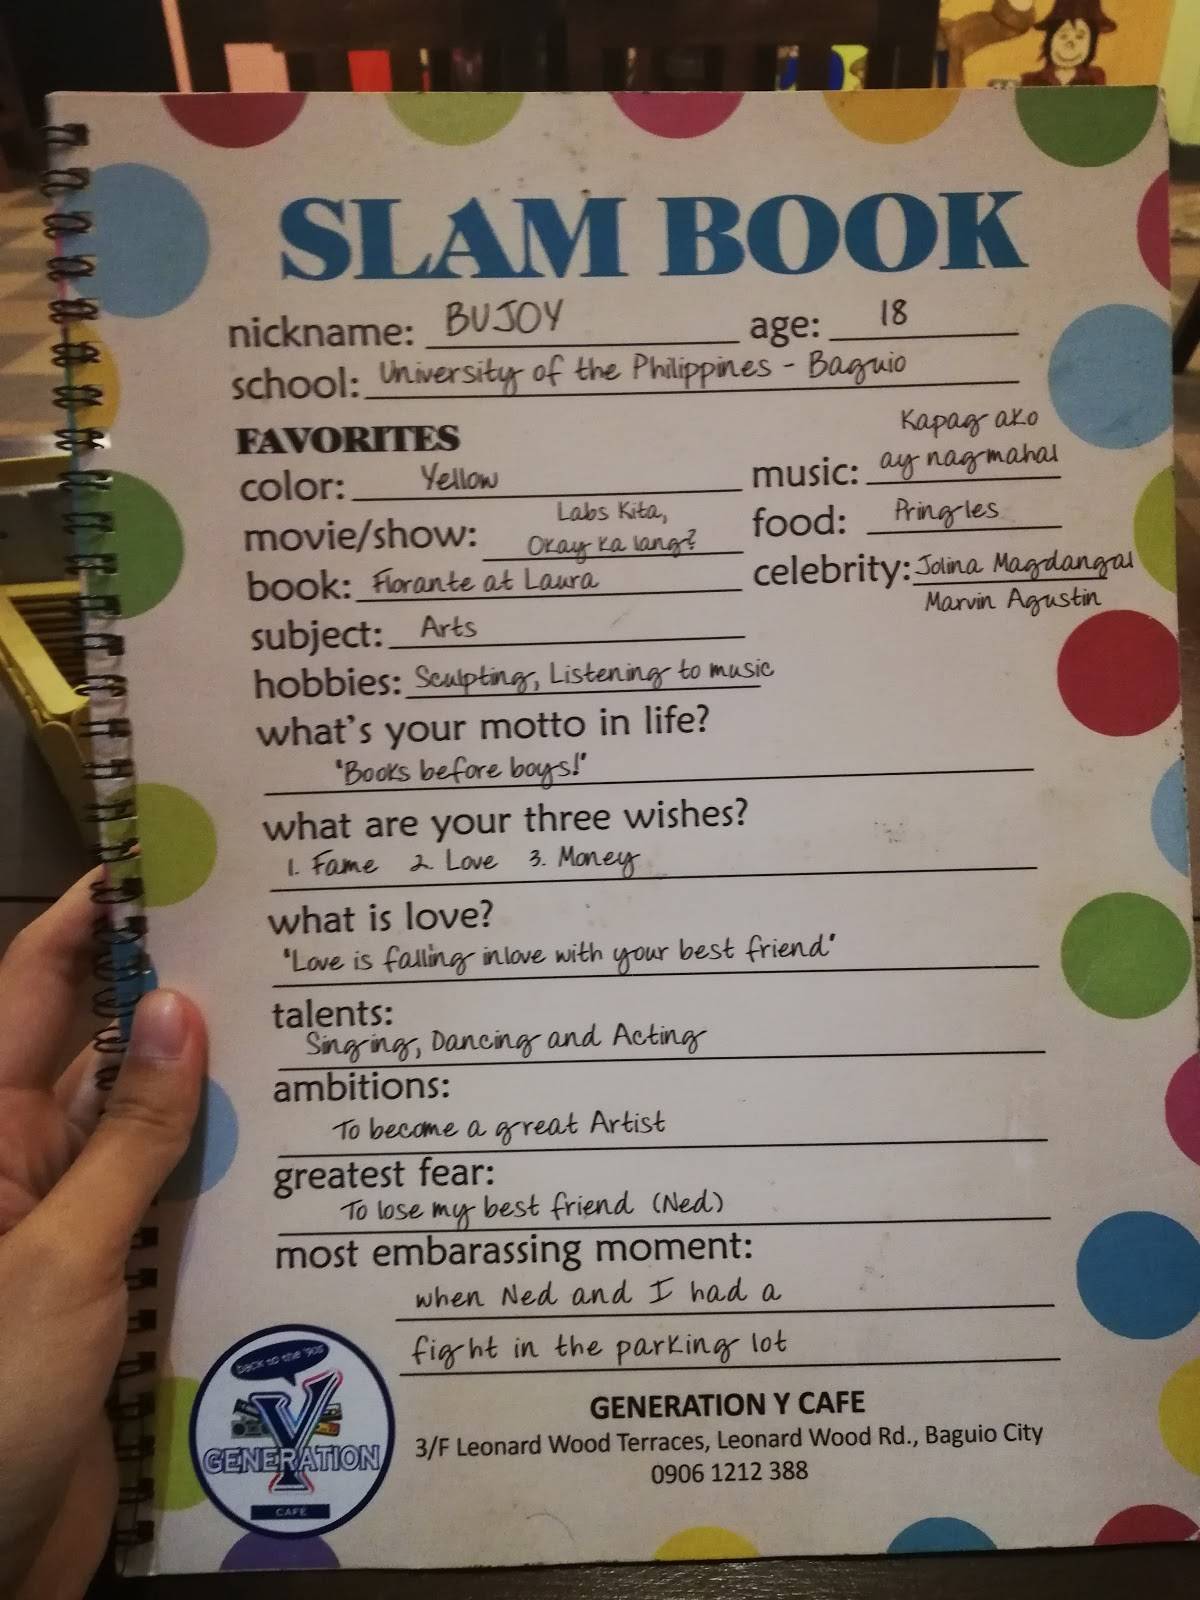 SLAM BOOK
nickname: BUJOY age: 18
school: University of the Philippines - Baguio
FAVORITES
color: Yellow
music: Kapag ako
ay nagmahal
movie/show: Labs Kita,
Okay ka lang?
food: Pringles
book: Florante at Laura
celebrity: Jolina Magdangal
Marvin Agustin
subject: Arts
hobbies: Sculpting, Listening to music
what's your motto in life?
"Books before boys!"
what are your three wishes?
1. Fame 2. Love 3. Money
what is love?
"Love is falling inlove with your best friend"
talents:
Singing, Dancing and Acting
ambitions:
To become a great Artist
greatest fear:
To lose my best friend (Ned)
most embarassing moment:
when Ned and I had a
fight in the parking lot
back to the '90s
Y
GENERATION
CAFE
GENERATION Y CAFE
3/F Leonard Wood Terraces, Leonard Wood Rd., Baguio City
0906 1212 388